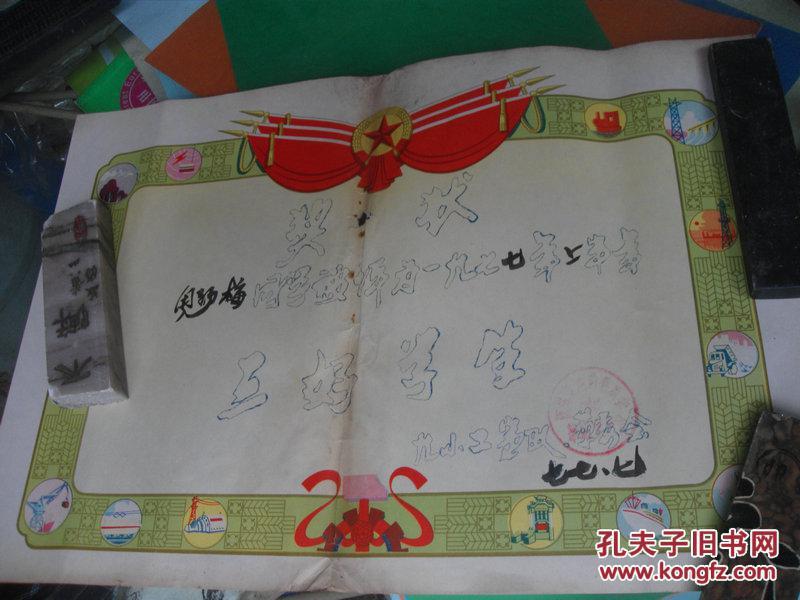 奖状
同学被评为一九七七年上半年
三好学生
九小工宣队、革委会
七七、七
孔夫子旧书网
www.kongfz.com